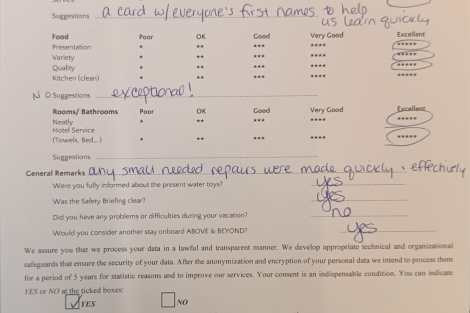 Suggestions a card w/everyone's first names to help
us learn quickly
Food Poor OK Good Very Good Excellent
Presentation * ** *** **** *****
Variety * ** *** **** *****
Quality * ** *** **** *****
Kitchen (clean) * ** *** **** *****
NO Suggestions exceptional!
Rooms/ Bathrooms Poor OK Good Very Good Excellent
Neatly * ** *** **** *****
Hotel Service
(Towels, Bed...) * ** *** **** *****
Suggestions
General Remarks any small needed repairs were made quickly + effectively
Were you fully informed about the present water toys? yes
Was the Safety Briefing clear? yes
Did you have any problems or difficulties during your vacation? no
Would you consider another stay onboard ABOVE & BEYOND? yes
We assure you that we process your data in a lawful and transparent manner. We develop appropriate technical and organizational
safeguards that ensure the security of your data. After the anonymization and encryption of your personal data we intend to process them
for a period of 5 years for statistic reasons and to improve our services. Your consent is an indispensable condition. You can indicate
YES or NO at the ticked boxes:
YES NO